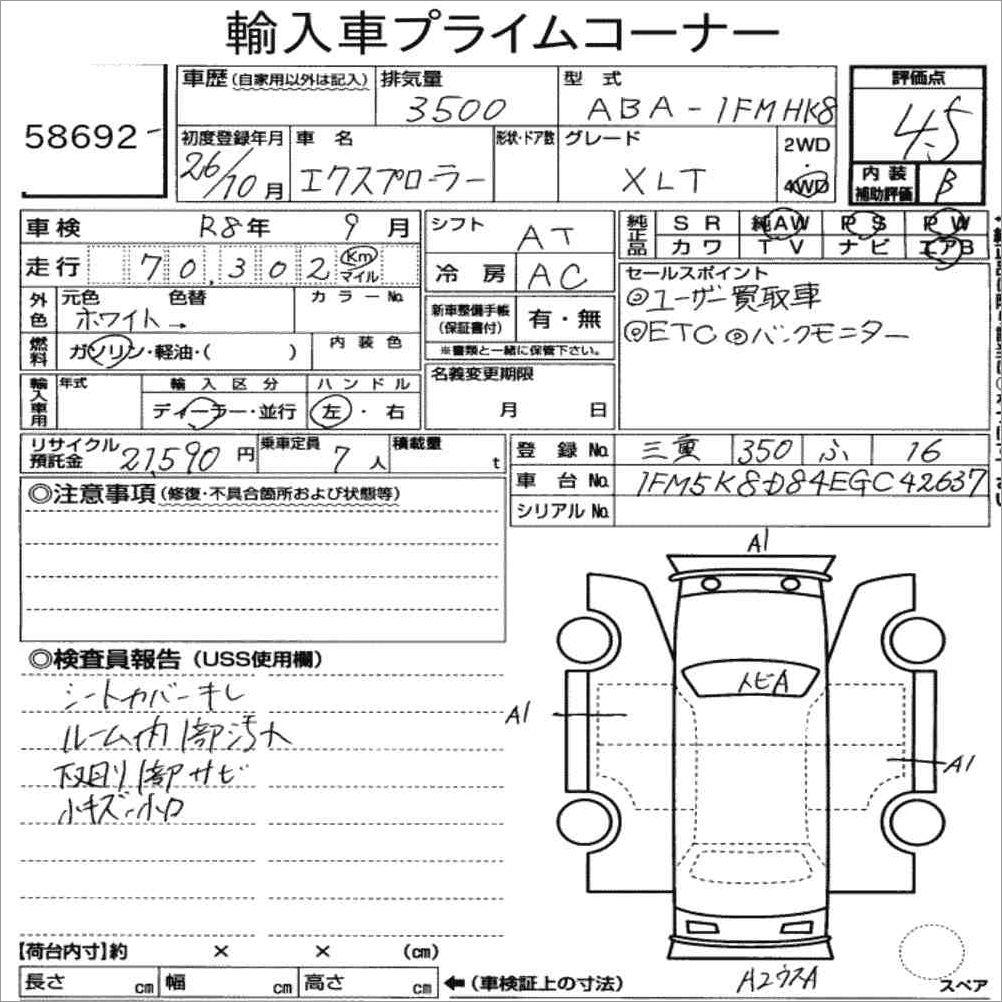 輸入車プライムコーナー
58692
車歴(自家用以外は記入)
排気量
3500
型式
ABA-1FMHK8
評価点
4.5
初度登録年月
26/10月
車名
エクスプローラー
形状・ドア数
グレード
XLT
2WD
・
4WD
内装
補助評価
B
車検 R8年 9月
走行 70,302 Km マイル
シフト AT
冷房 AC
純正品
SR 純AW PS PW
カワ TV ナビ エアB
セールスポイント
◎ユーザー買取車
◎ETC ◎バックモニター
外色
元色 色替
ホワイト→
カラーNo.
燃料
ガソリン・軽油・( )
内装色
新車整備手帳
(保証書付)
有・無
※書類と一緒に保管下さい。
輸入車用
年式
輸入区分
ディーラー・並行
ハンドル
左・右
名義変更期限
月 日
リサイクル
預託金
21,590円
乗車定員
7人
積載量
t
登録No. 三重 350 ふ 16
車台No. 1FM5K8D84EGC42637
シリアルNo.
◎注意事項(修復・不具合箇所および状態等)
◎検査員報告(USS使用欄)
シートカバーキレ
ルーム内1部汚れ
下廻り1部サビ
小キズ・小凹
A1
トビA
A1
A1
A2ウスA
スペア
【荷台内寸】約 × × (cm)
長さ cm 幅 cm 高さ cm
←(車検証上の寸法)